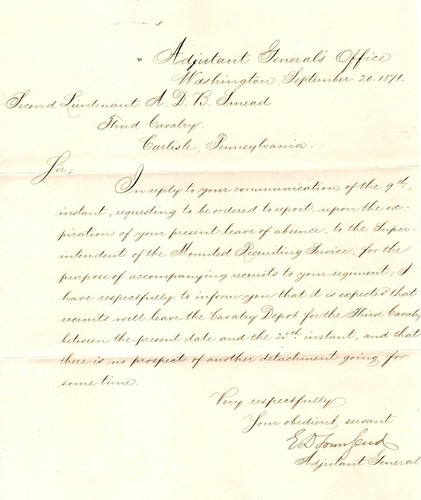 Adjutant General's Office
Washington, September 20. 1871.
Second Lieutenant A. D. B. Smead
Third Cavalry.
Carlisle, Pennsylvania.
Sir;
In reply to your communication of the 9th.
instant, requesting to be ordered to report, upon the ex-
piration of your present leave of absence, to the Super-
intendent of the Mounted Recruiting Service, for the
purpose of accompanying recruits to your regiment, I
have respectfully to inform you that it is expected that
recruits will leave the Cavalry Depot for the Third Cavalry
between the present date and the 25th. instant, and that
there is no prospect of another detachment going for
some time.
Very respectfully
Your obedient servant
E D Townsend
Adjutant General